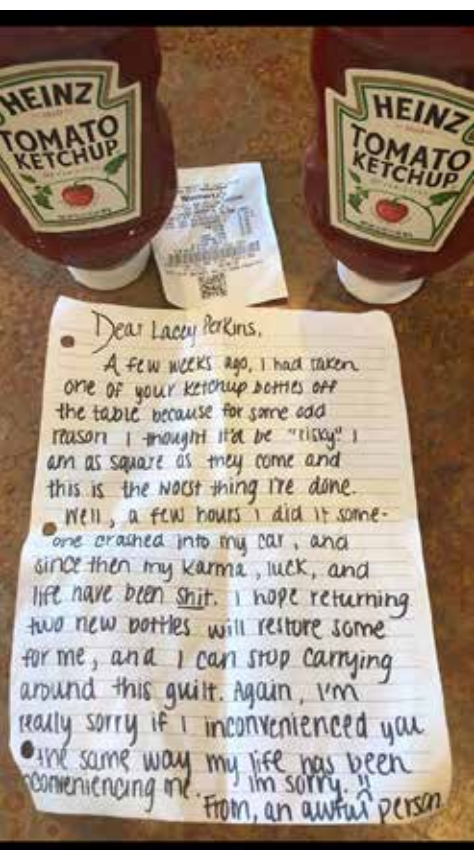 HEINZ
TOMATO
KETCHUP
HEINZ
TOMATO
KETCHUP
Dear Lacey Perkins,
A few weeks ago, I had taken
one of your ketchup bottles off
the table because for some odd
reason I thought it'd be "risky." I
am as square as they come and
this is the worst thing I've done.
Well, a few hours I did it some-
one crashed into my car, and
since then my karma, luck, and
life have been shit. I hope returning
two new bottles will restore some
for me, and I can stop carrying
around this guilt. Again, I'm
really sorry if I inconvenienced you
the same way my life has been
inconveniencing me. I'm sorry. !!
From, an awful person